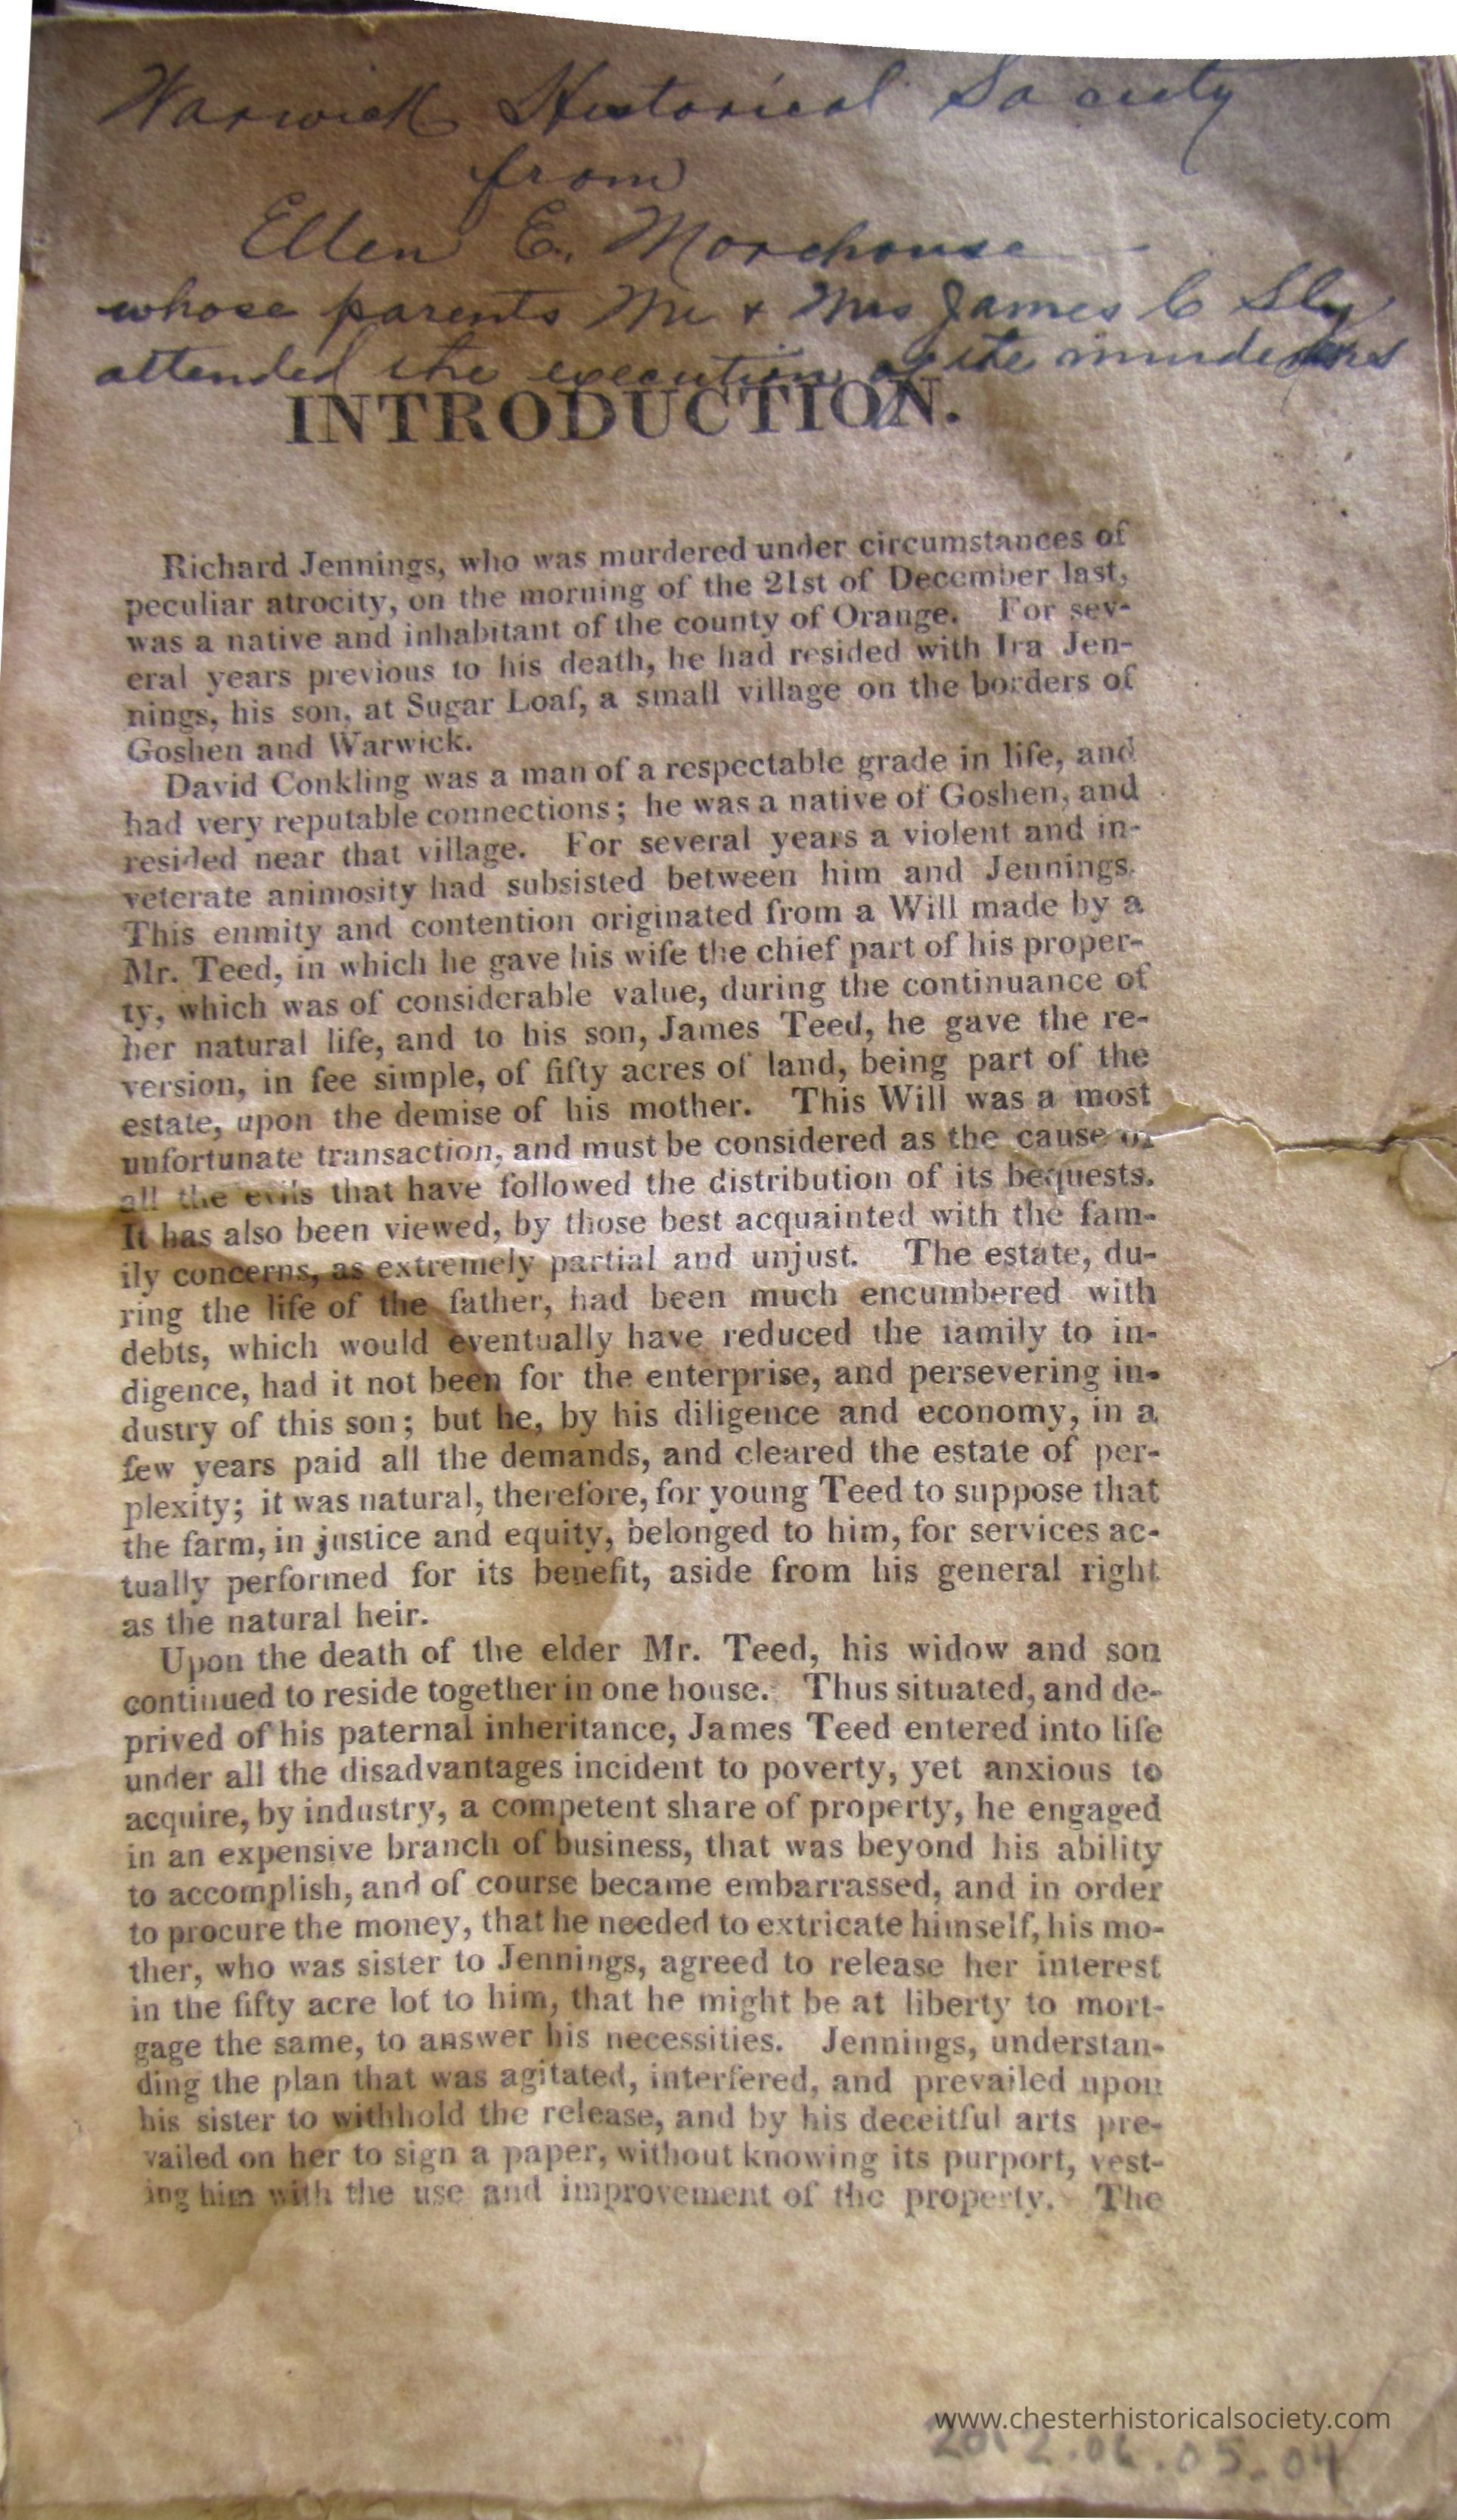 Warwick Historical Society
from
Ellen E. Morehouse
whose parents Mr & Mrs James C Sly
attended the execution of the murderers
INTRODUCTION.
Richard Jennings, who was murdered under circumstances of
peculiar atrocity, on the morning of the 21st of December last,
was a native and inhabitant of the county of Orange. For sev-
eral years previous to his death, he had resided with Ira Jen-
nings, his son, at Sugar Loaf, a small village on the borders of
Goshen and Warwick.
David Conkling was a man of a respectable grade in life, and
had very reputable connections; he was a native of Goshen, and
resided near that village. For several years a violent and in-
veterate animosity had subsisted between him and Jennings.
This enmity and contention originated from a Will made by a
Mr. Teed, in which he gave his wife the chief part of his proper-
ty, which was of considerable value, during the continuance of
her natural life, and to his son, James Teed, he gave the re-
version, in fee simple, of fifty acres of land, being part of the
estate, upon the demise of his mother. This Will was a most
unfortunate transaction, and must be considered as the cause of
all the evils that have followed the distribution of its bequests.
It has also been viewed, by those best acquainted with the fam-
ily concerns, as extremely partial and unjust. The estate, du-
ring the life of the father, had been much encumbered with
debts, which would eventually have reduced the family to in-
digence, had it not been for the enterprise, and persevering in-
dustry of this son; but he, by his diligence and economy, in a
few years paid all the demands, and cleared the estate of per-
plexity; it was natural, therefore, for young Teed to suppose that
the farm, in justice and equity, belonged to him, for services ac-
tually performed for its benefit, aside from his general right
as the natural heir.
Upon the death of the elder Mr. Teed, his widow and son
continued to reside together in one house. Thus situated, and de-
prived of his paternal inheritance, James Teed entered into life
under all the disadvantages incident to poverty, yet anxious to
acquire, by industry, a competent share of property, he engaged
in an expensive branch of business, that was beyond his ability
to accomplish, and of course became embarrassed, and in order
to procure the money, that he needed to extricate himself, his mo-
ther, who was sister to Jennings, agreed to release her interest
in the fifty acre lot to him, that he might be at liberty to mort-
gage the same, to answer his necessities. Jennings, understan-
ding the plan that was agitated, interfered, and prevailed upon
his sister to withhold the release, and by his deceitful arts pre-
vailed on her to sign a paper, without knowing its purport, vest-
ing him with the use and improvement of the property. The
www.chesterhistoricalsociety.com
2012.06.05.04